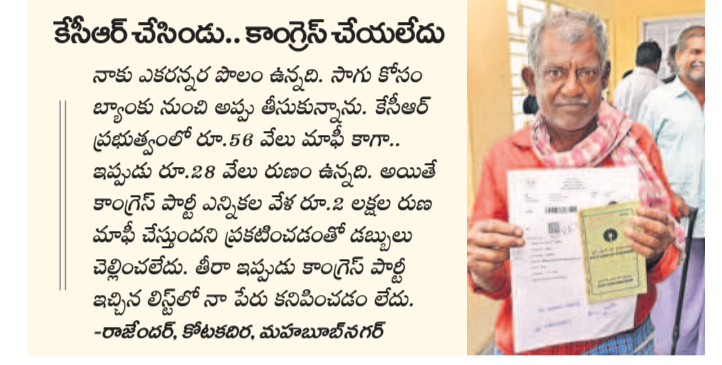 కేసీఆర్ చేసిండు.. కాంగ్రెస్ చేయలేదు
నాకు ఎకరన్నర పొలం ఉన్నది. సాగు కోసం
బ్యాంకు నుంచి అప్పు తీసుకున్నాను. కేసీఆర్
ప్రభుత్వంలో రూ.56 వేలు మాఫీ కాగా..
ఇప్పుడు రూ.28 వేలు రుణం ఉన్నది. అయితే
కాంగ్రెస్ పార్టీ ఎన్నికల వేళ రూ.2 లక్షల రుణ
మాఫీ చేస్తుందని ప్రకటించడంతో డబ్బులు
చెల్లించలేదు. తీరా ఇప్పుడు కాంగ్రెస్ పార్టీ
ఇచ్చిన లిస్ట్‌లో నా పేరు కనిపించడం లేదు.
-రాజేందర్, కోటకదిర, మహబూబ్‌నగర్